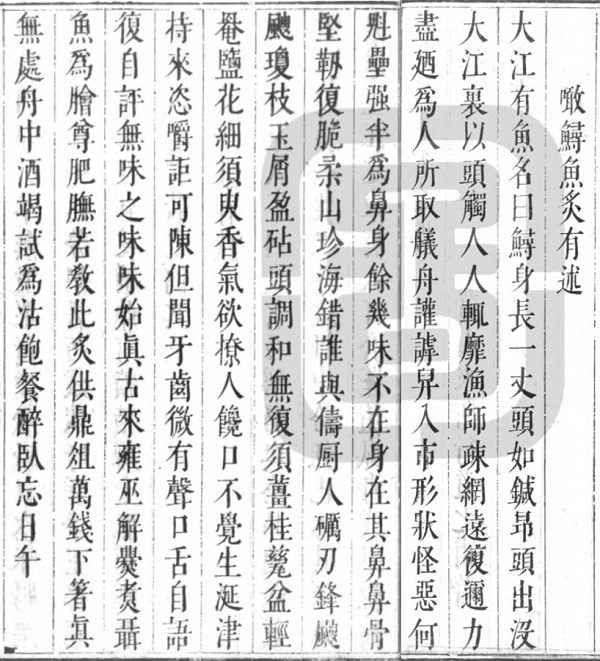 噉鱘魚炙有述
大江有魚名曰鱘身長一丈頭如鍼昂頭出沒
大江裏以頭觸人人輒靡漁師疎網遠復邇力
盡廼爲人所取艤舟讙謼舁入市形狀怪惡何
魁壘强半爲鼻身餘幾味不在身在其鼻鼻骨
堅韌復脆柔山珍海錯誰與儔厨人礪刃鋒颼
颼瓊枝玉屑盈砧頭調和無復須薑桂甕盆輕
罨鹽花細須臾香氣欲撩人饞口不覺生涎津
持來恣嚼詎可陳但聞牙齒微有聲口舌自語
復自評無味之味味始眞古來雍巫解爨煑聶
魚爲膾尊肥膴若敎此炙供鼎俎萬錢下箸眞
無處舟中酒竭試爲沽飽餐醉臥忘日午